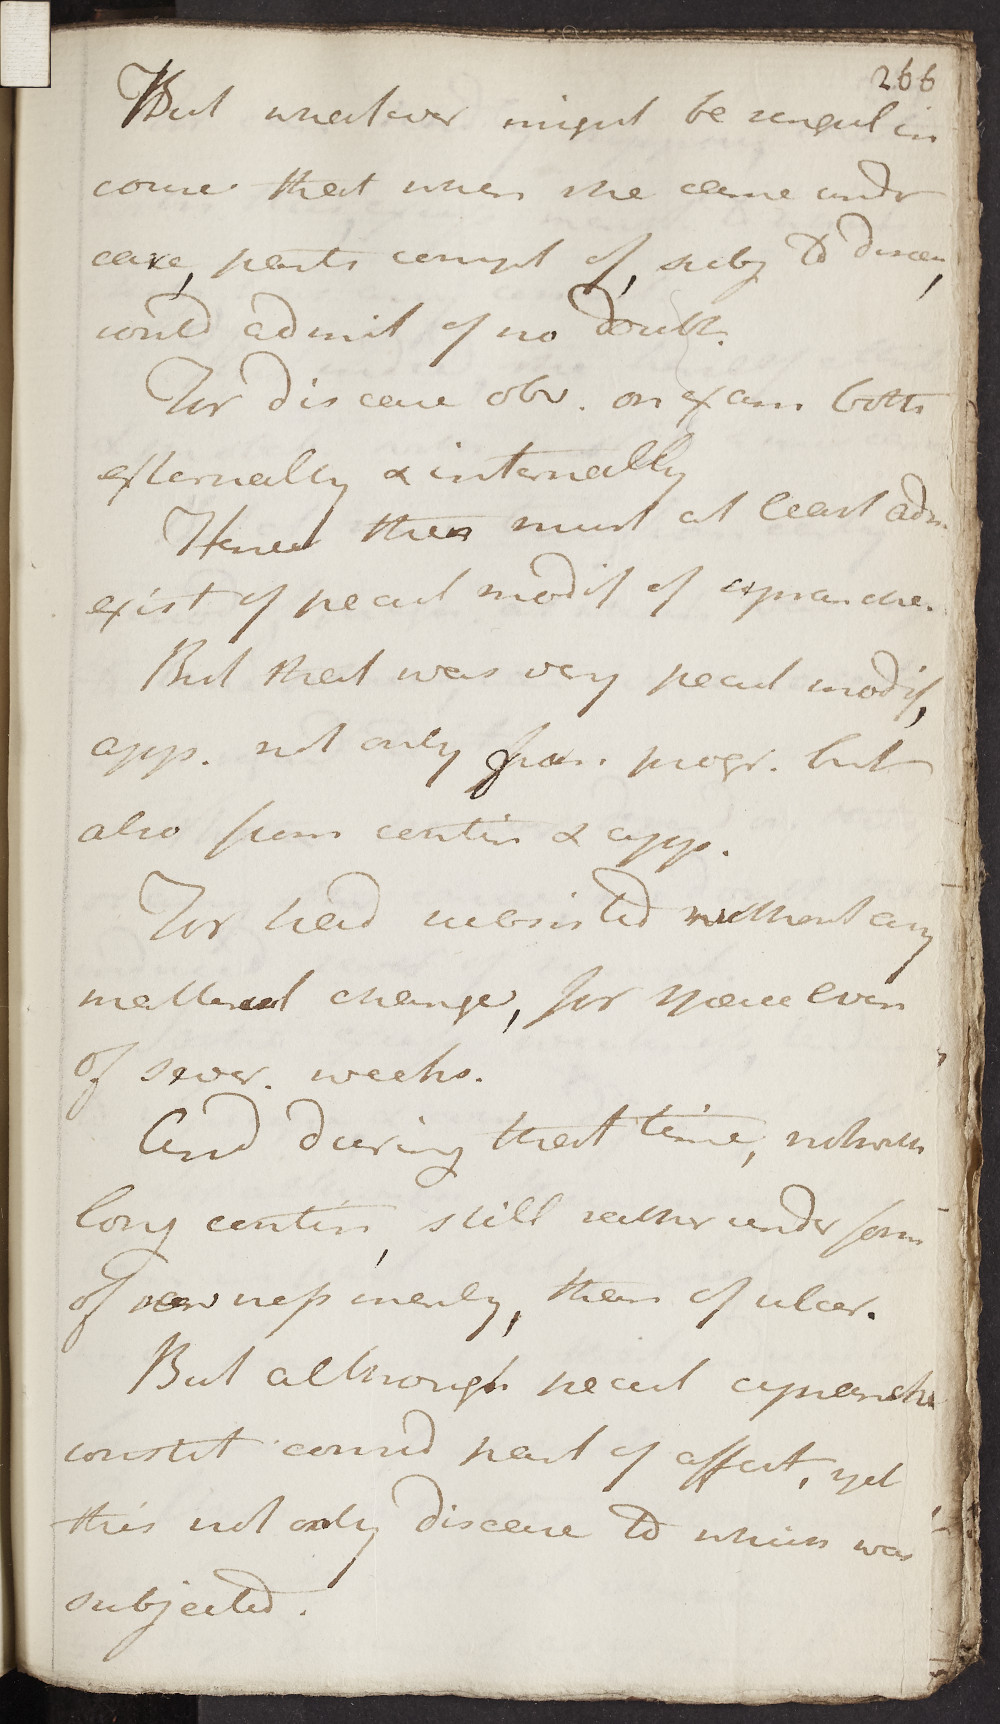 266
But whatever might be singul in
course that when she came undr
care, parts compl of, subj to disease,
could admit of no doubt.
For disease obv. on exam both
externally & internally
Hence then must at least adm.
exist of pecul modif of cynanche.
But that was very pecul modif,
app. not only from progr. but
also from contin & app.
For had subsisted without any
material change, for space even
of sever. weeks.
And during that time, notwith
long contin, still rather under form
of rawness merely, than of ulcer.
But although pecul cynanche
constit consid part of affect, yet
this not only disease to which was
subjected.